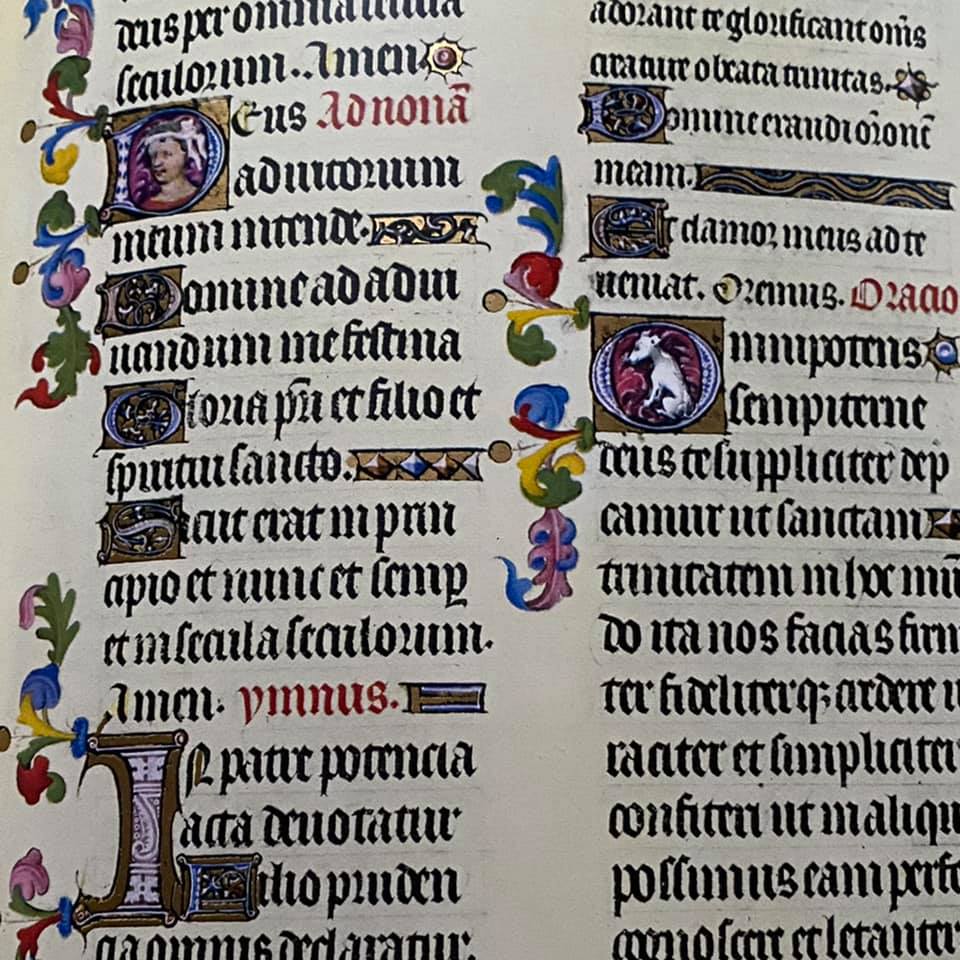 deus per omnia secula
seculorum. Amen
Deus Ad nonā
adiutorium
meum intende.
Domine ad adiu
uandum me festina
Gloria pr̄i et filio et
spiritui sancto.
Sicut erat in prin
cipio et nunc et semꝑ
et in secula seculorum.
Amen. ymnus.
In patre potencia
facta denotatur
Filio pruden
cia omnis declaratur.
adorant te glorificant om̄s
creature o beata trinitas.
Domine exaudi or̄onē
meam.
Et clamor meus ad te
ueniat. Oremus. Oracio
Omnipotens
sempiterne
deus te suppliciter dep
camur ut sanctam
trinitatem in hoc mū
do ita nos facias firm
ter fideliterq; credere
raciter et simpliciter
confiteri ut in aliqu
possimus eam perfe
cognoscere et letanter